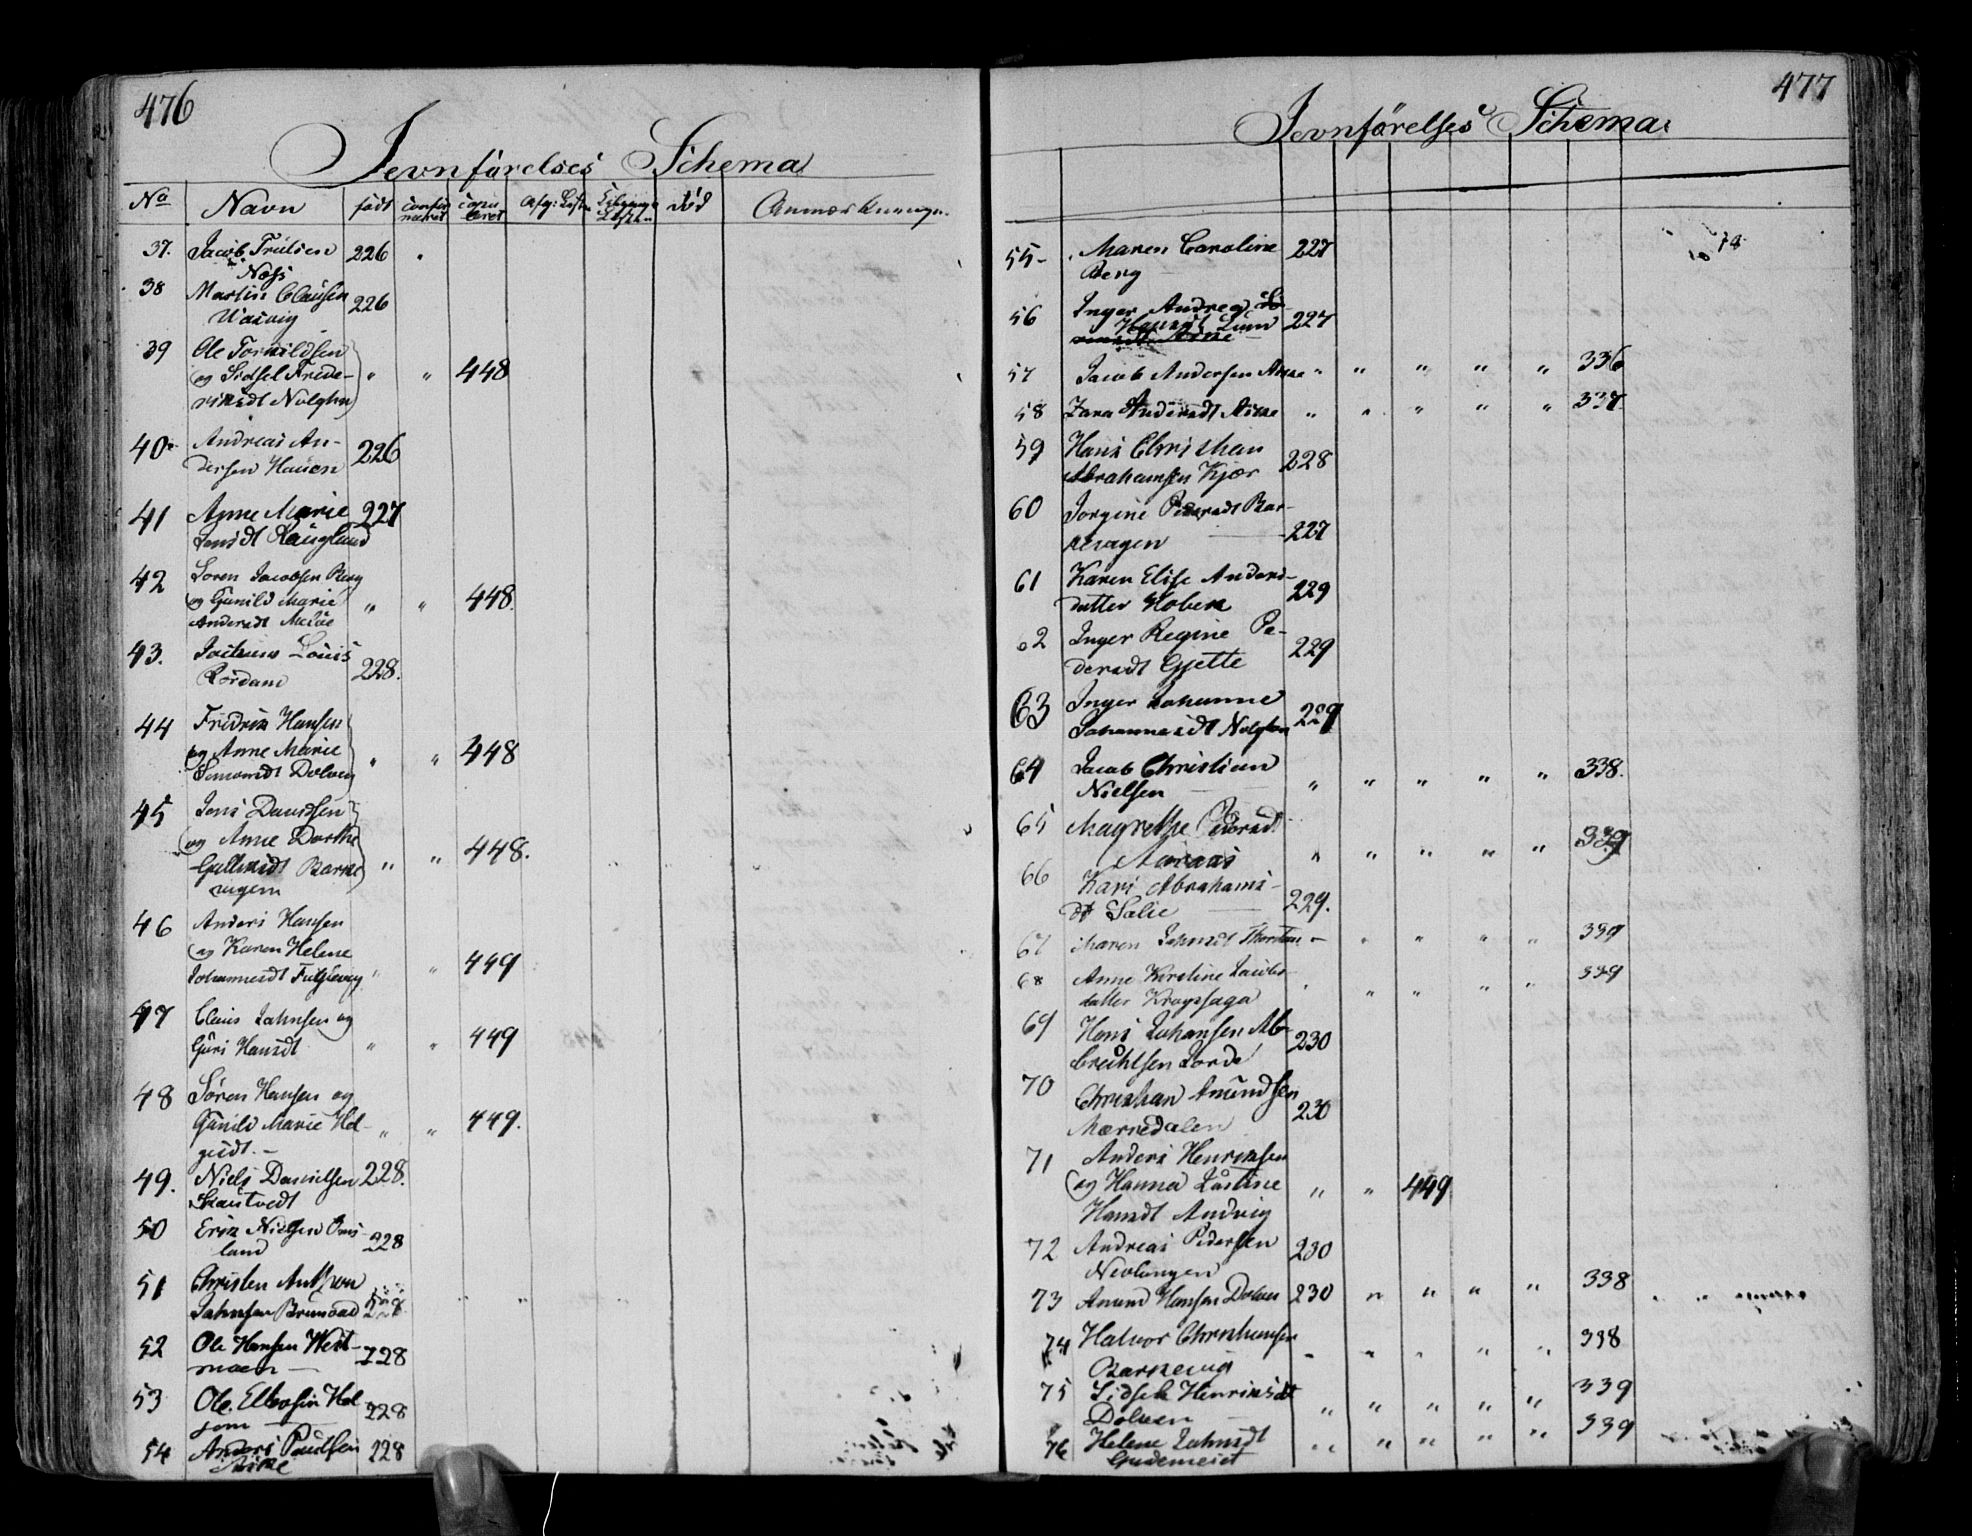 476
Jevnförelses Schema
No Navn född confirmeret copuleret Afg: Listen Tilgangs Listen död Anmærkninger
37. Jacob Trulsen 226
Næss
38 Martin Clausen 226
39 Ole
og Sidsel Frede-
riksdt Nolghn " " 448
40. Andreas An-
dersen Hauen 226
41 Anne Marie 227
Jensdt Rauglund
42 Sören Jacobsen Berg
og Gunild Marie " " 448.
Andersdt
43. Jochum Louis
Rördam 228.
44 Fredrik Hansen
og Anne Marie " " 448
Simonsdt Dolven
45 Jens Davidsen
og Anne Dorthe
Gulliksdt Barke " " 448.
vigen
46 Anders Hansen
og Karen Helene
Johannesdt " " 449
47 Claus Jahnsen og
Guri Hansdt " " 449
48 Sören Hansen og
Gunild Marie Hel- " " 449.
gesdt. -
49. Niels Danielsen 228.
Skautvedt
50 Erik Nielsen Oms-
land 228
51 Christen Anthon
Jahnsen Brunvad 228 " "
52 Ole Hansen West-
moen 228
53 Ole Hol-
jom 228
54 Anders Paulsen 228
Aske
477
Jevnförelses Schema
55- Maren Caroline 227
Berg
56 Inger Andrea
Hansdt Lund 227
57 Jacob Andersen Aske " " " " " 336
58 Andersdt Aske " " " " " 337.
59 Hans Christian
Abrahamsen Kjær 228
60 Jorgine Pedersdt Bar-
kevagen 227
61 Karen Elise Anders-
datter Hobek 229
62 Inger Regine Pe-
dersdt Gjette 229
63 Inger Johanne
Johannesdt Nolghn 229
64 Jacob Christian
Nielsen " " " " " 338.
65 Magrethe Pedersdt
Aaraas " " " " " 339
66 Kari Abrahams-
dt Salie 229.
67 Maren Jahnsdt - " " " " 339
68 Anne Kirstine Jacobs-
datter " " " " " 339
69 Hans Johansen Al-
brechtsen Jorde 230
70 Christian Amundsen
Mærkedalen 230
71 Anders Henriksen
og Hanna Justine " " 449
Hansdt Andvig
72 Andreas Pedersen 230
Nevlungen
73 Amund Hansen Dolven 230 " " " " 338
74 Halvor Christiansen
Barkevig " " " " " 338
75 Sidsele Henriksdt
Dolven " " " " " 339
76 Helene Jahnsdt
" " " " " 339